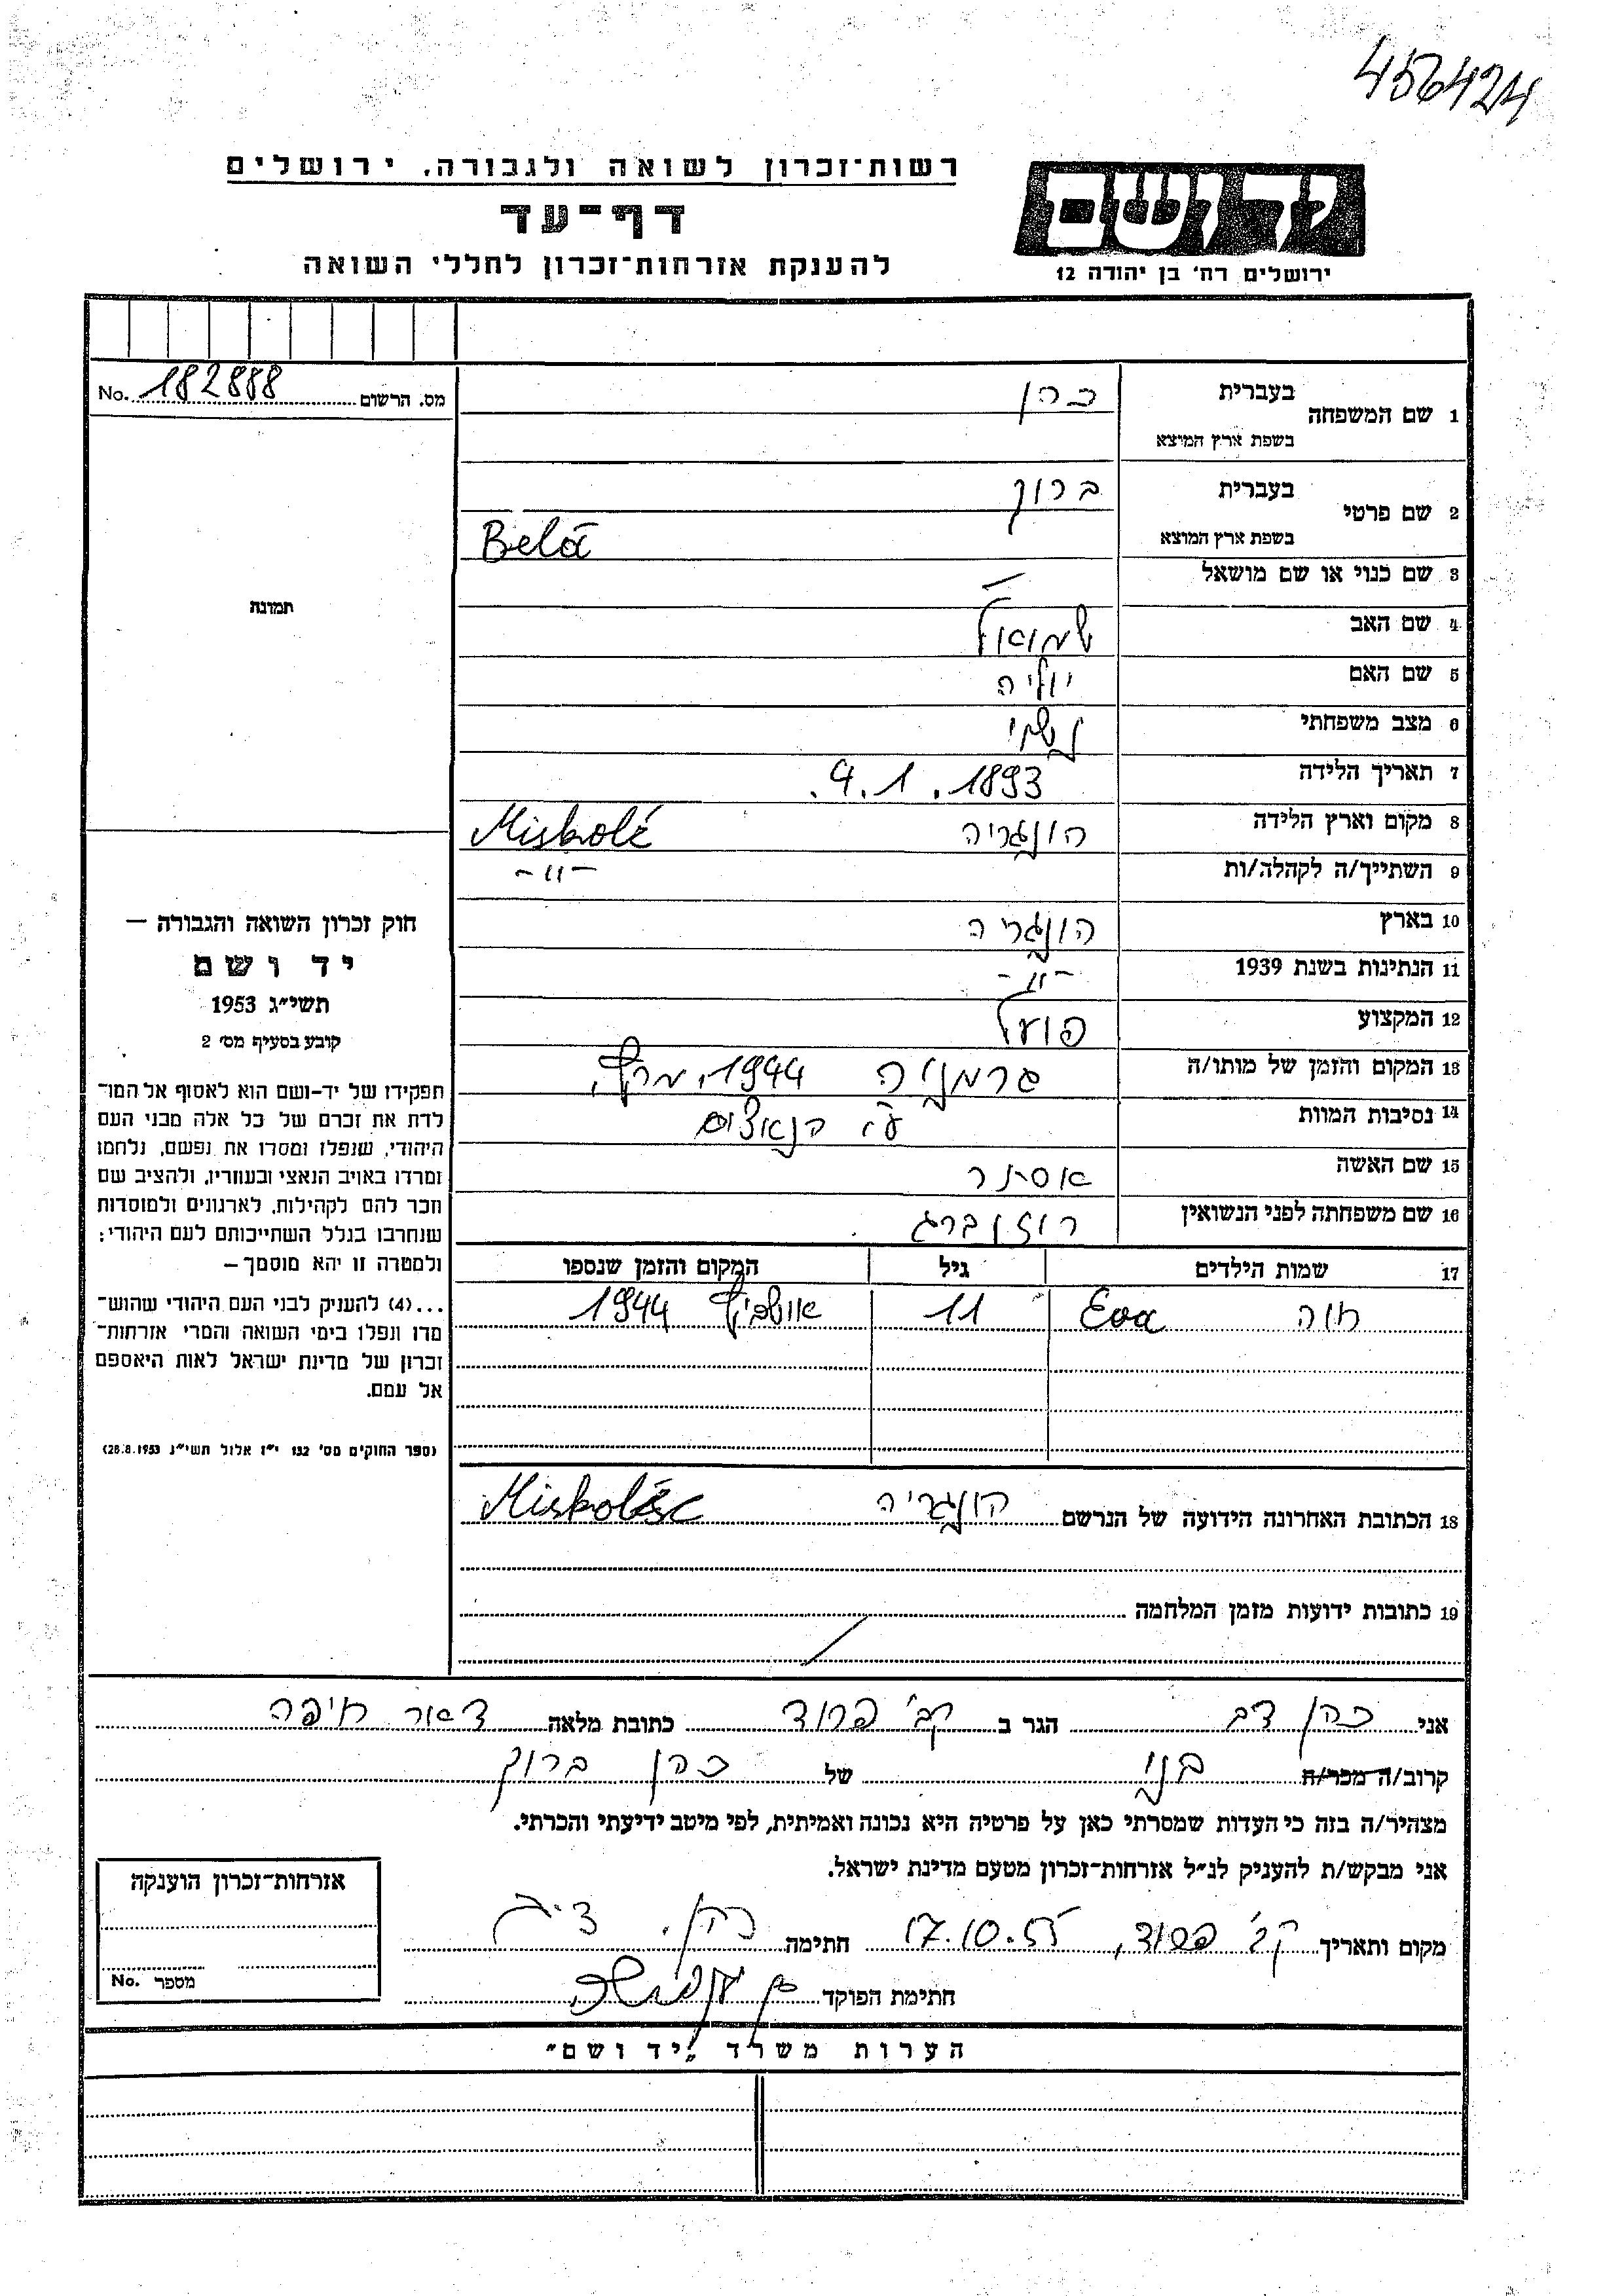 456424
רשות־זכרון לשואה ולגבורה. ירושלים
דף־עד
להענקת אזרחות־זכרון לחללי השואה
יד ושם
ירושלים רח' בן יהודה 12
מס. הרשום 182888 No.
תמונה
חוק זכרון השואה והגבורה —
יד ושם
תשי״ג 1953
קובע בסעיף מס׳ 2
תפקידו של יד-ושם הוא לאסוף אל המו־
לדת את זכרם של כל אלה מבני העם
היהודי, שנפלו ומסרו את נפשם, נלחמו
ומרדו באויב הנאצי ובעוזריו, ולהציב שם
וזכר להם לקהילות, לארגונים ולמוסדות
שנחרבו בגלל השתייכותם לעם היהודי:
ולמטרה זו יהא מוסמך —
...(4) להעניק לבני העם היהודי שהוש־
מדו ונפלו בימי השואה והמרי אזרחות־
זכרון של מדינת ישראל לאות היאספם
אל עמם.
(ספר החוקים מס׳ 132 י״ז אלול תשי״ג 28.8.1953)
1 שם המשפחה בעברית כהן
בשפת ארץ המוצא
2 שם פרטי בעברית ברוך
בשפת ארץ המוצא Belá
3 שם כנוי או שם מושאל —
4 שם האב שמואל
5 שם האם יוליה
6 מצב משפחתי נשוי
7 תאריך הלידה 9.1.1893.
8 מקום וארץ הלידה הונגריה Miskolć
9 השתייך/ה לקהלה/ות -״-
10 בארץ הונגריה
11 הנתינות בשנת 1939 -״-
12 המקצוע פועל
13 המקום והזמן של מותו/ה גרמניה 1944,
14 נסיבות המוות ע״י הנאצים
15 שם האשה אסתר
16 שם משפחתה לפני הנשואין רוזנברג
17 שמות הילדים גיל המקום והזמן שנספו
חוה Eva 11 אושביץ 1944
18 הכתובת האחרונה הידועה של הנרשם הונגריה Miskolész
19 כתובות ידועות מזמן המלחמה
אני כהן דב הגר ב קב׳ פרוד כתובת מלאה דאר חיפה
קרוב/ה מכר/ה בנו של כהן ברוך
מצהיר/ה בזה כי העדות שמסרתי כאן על פרטיה היא נכונה ואמיתית, לפי מיטב ידיעתי והכרתי.
אני מבקש/ת להעניק לנ״ל אזרחות-זכרון מטעם מדינת ישראל.
מקום ותאריך קב׳ פרוד, 17.10.55 חתימה כהן. דב
חתימת הפוקד
אזרחות־זכרון הוענקה
מספר No.
הערות משרד „יד ושם״